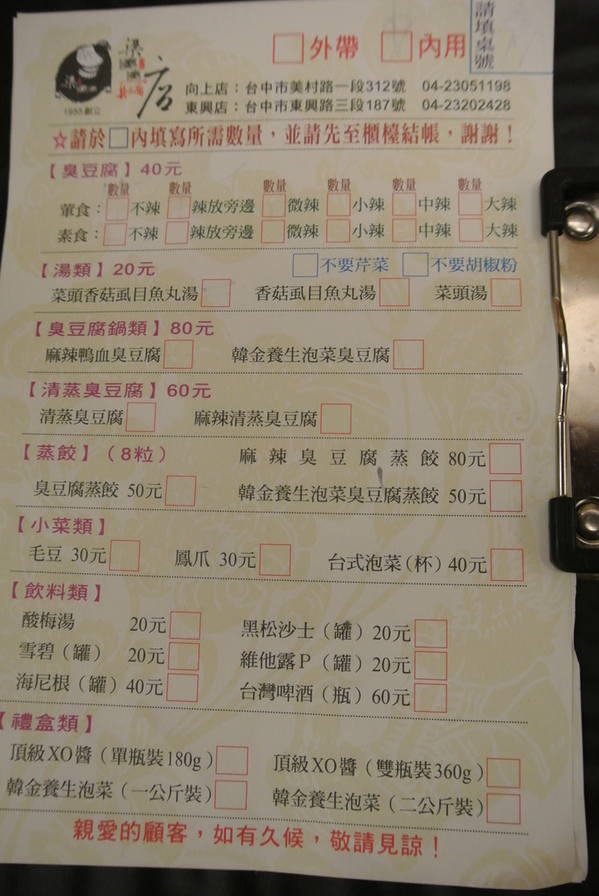 請填桌號
□外帶 □內用
店
1955創立
向上店：台中市美村路一段312號 04-23051198
東興店：台中市東興路三段187號 04-23202428
☆請於□內填寫所需數量，並請先至櫃檯結帳，謝謝！
【臭豆腐】40元
數量 數量 數量 數量 數量 數量
葷食：□不辣 □辣放旁邊 □微辣 □小辣 □中辣 □大辣
素食：□不辣 □辣放旁邊 □微辣 □小辣 □中辣 □大辣
【湯類】20元 □不要芹菜 □不要胡椒粉
菜頭香菇虱目魚丸湯□ 香菇虱目魚丸湯□ 菜頭湯□
【臭豆腐鍋類】80元
麻辣鴨血臭豆腐□ 韓金養生泡菜臭豆腐□
【清蒸臭豆腐】60元
清蒸臭豆腐□ 麻辣清蒸臭豆腐□
【蒸餃】（8粒） 麻辣臭豆腐蒸餃 80元□
臭豆腐蒸餃 50元□ 韓金養生泡菜臭豆腐蒸餃 50元□
【小菜類】
毛豆 30元□ 鳳爪 30元□ 台式泡菜（杯）40元□
【飲料類】
酸梅湯 20元□ 黑松沙士（罐）20元□
雪碧（罐） 20元□ 維他露P（罐）20元□
海尼根（罐）40元□ 台灣啤酒（瓶）60元□
【禮盒類】
頂級XO醬（單瓶裝180g）□ 頂級XO醬（雙瓶裝360g）□
韓金養生泡菜（一公斤裝）□ 韓金養生泡菜（二公斤裝）□
親愛的顧客，如有久候，敬請見諒！